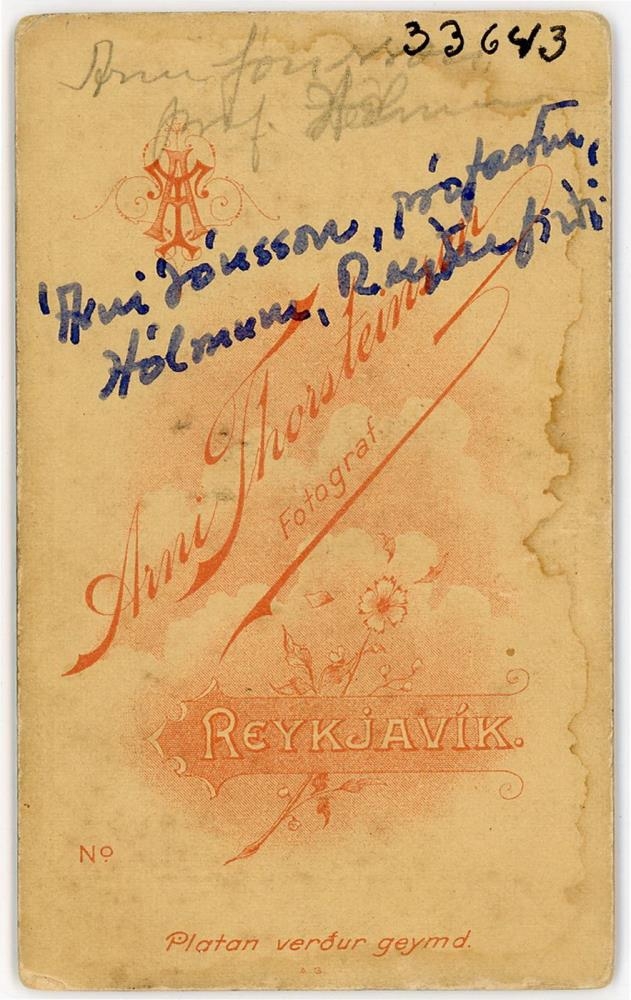 33643
Arni Jónsson
prof. Hólmum
Árni Jónsson, prófastur,
Hólmum, Reyðarfirði
Arni Thorsteinsson
Fotograf.
REYKJAVÍK.
No
Platan verður geymd.